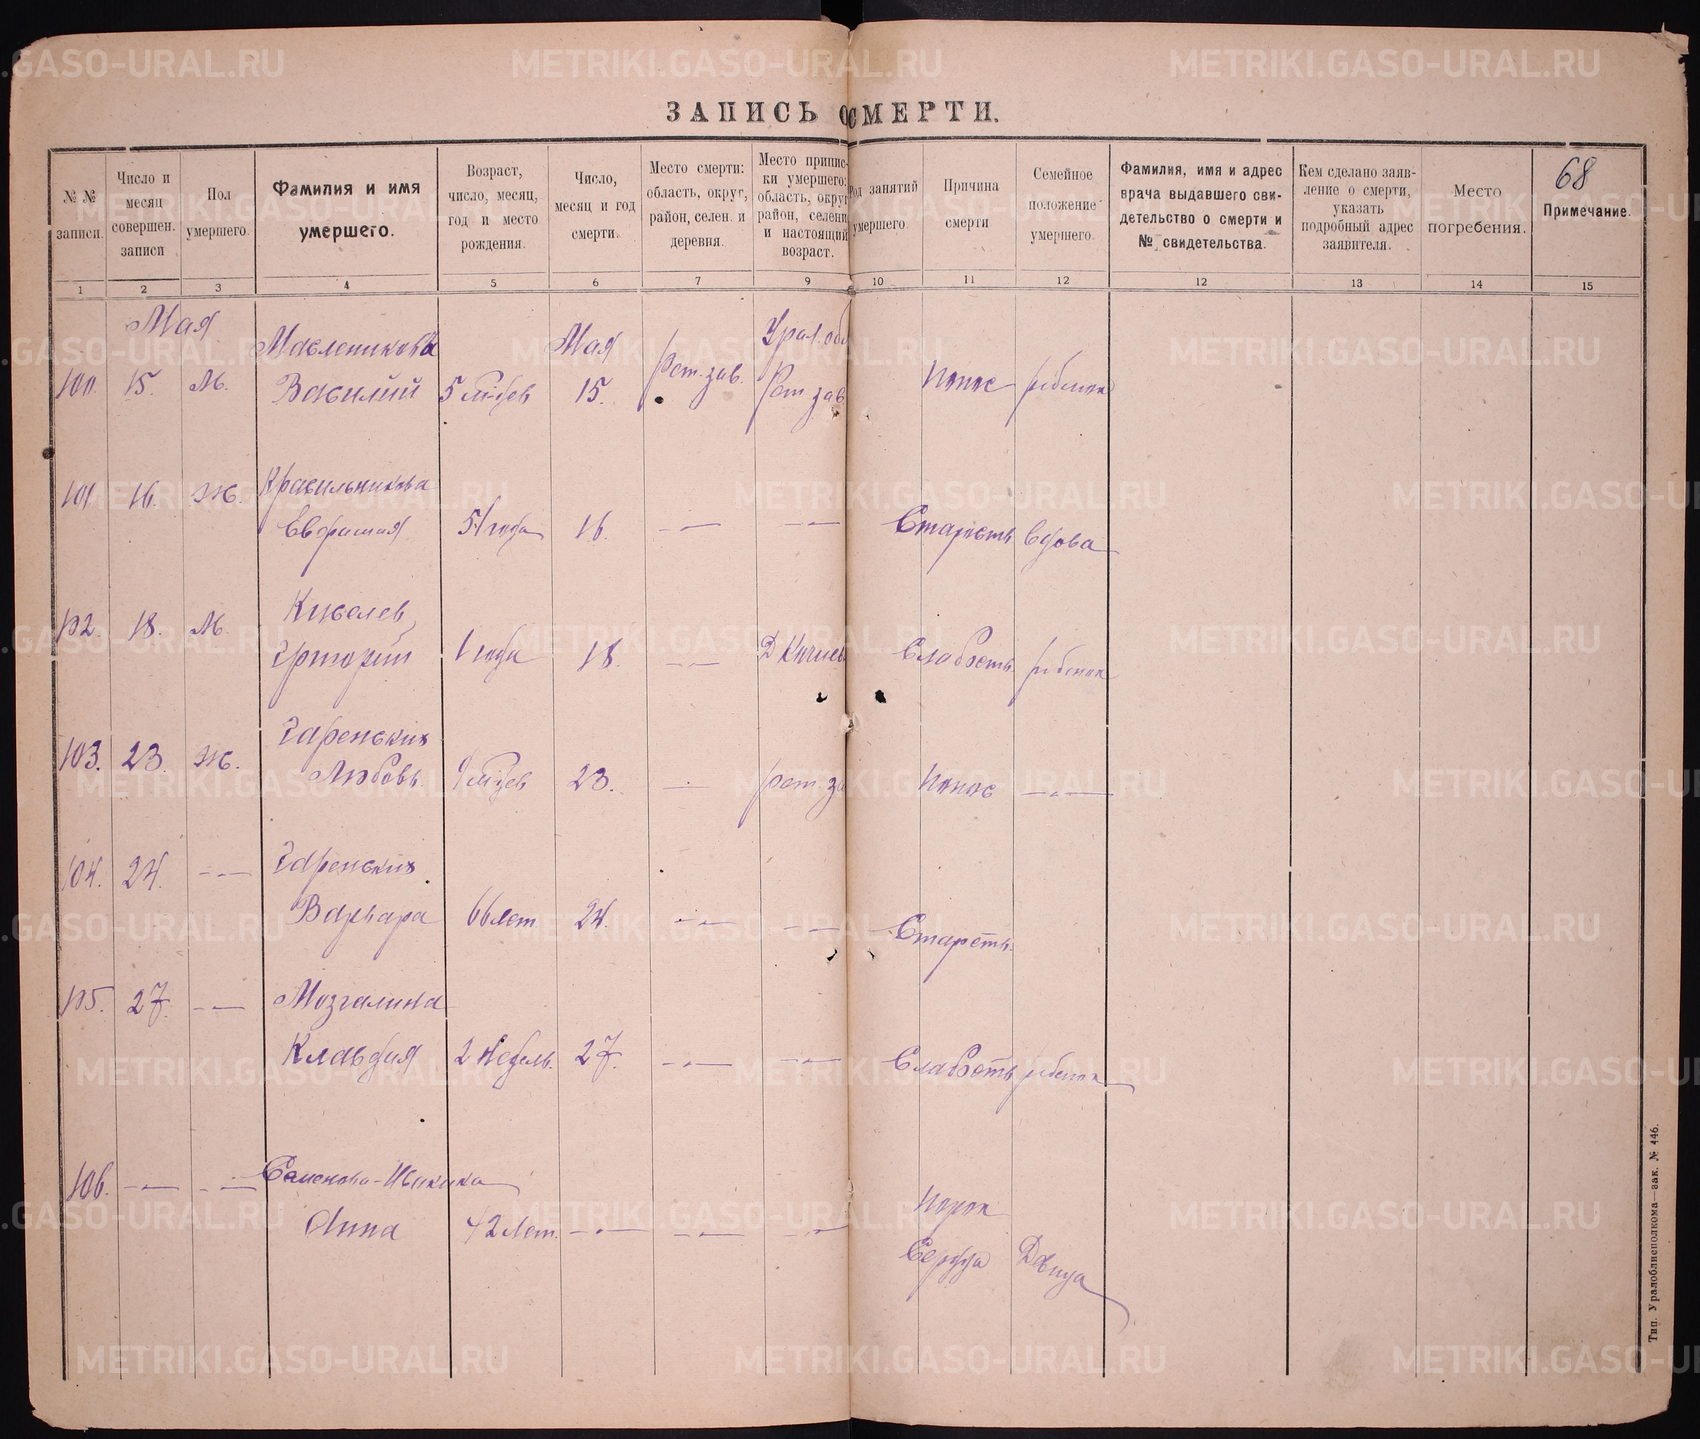 ЗАПИСЬ О СМЕРТИ.
68
№ № записи.
Число и месяц совершен. записи
Пол умершего.
Фамилия и имя умершего.
Возраст, число, месяц, год и место рождения.
Число, месяц и год смерти.
Место смерти: область, округ, район, селен. и деревня.
Место припис-ки умершего: область, округ район, селени и настоящий возраст.
Род занятий умершего.
Причина смерти
Семейное положение умершего.
Фамилия, имя и адрес врача выдавшего сви-детельство о смерти и № свидетельства.
Кем сделано заяв-ление о смерти, указать подробный адрес заявителя.
Место погребения.
Примечание.
1 2 3 4 5 6 7 8 9 10 11 12 12 13 14 15
Мая Масленикова Мая Урал. обл
100. 15. М. Василий 5 м-цев 15. Реж. зав. Реж зав Понос ребенок
101 16. Ж. Красильникова
54 года 16. Старость вдова
102. 18. М. Киселев
Григорий 1 года 18. Слабость ребенок
103. 23. Ж.
Любовь 9 м-цев 23. Реж. за Понос
104. 24.
Варвара 66 лет 24. Старость
105. 27. Мозгалина
Клавдия 2 недель. 27. Слабость ребенок
106.
Анна 42 лет. Порок
Сердца Девица
Тип. Уралоблисполкома—зак. № 446.
METRIKI.GASO-URAL.RU